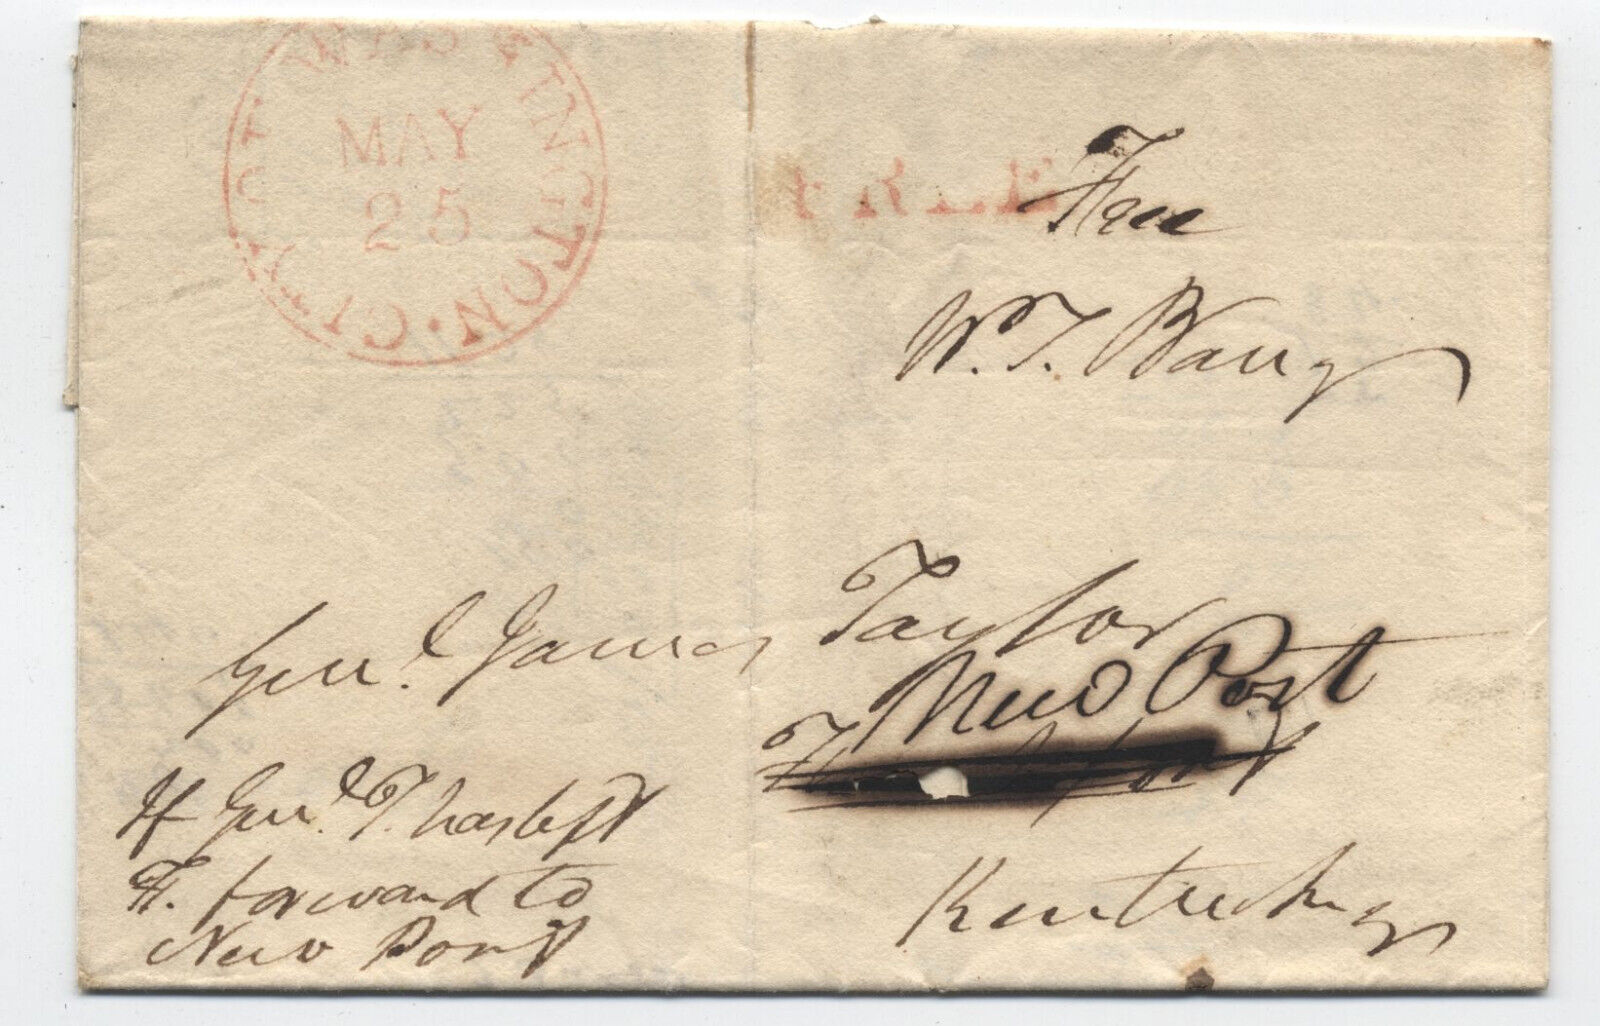 WASHINGTON CITY
OCT.
MAY
25
FREE
Free
W. T. Barry
Genl. James Taylor
New Port
Kentucky
If Genl. T. has left
F. forward to
New Port